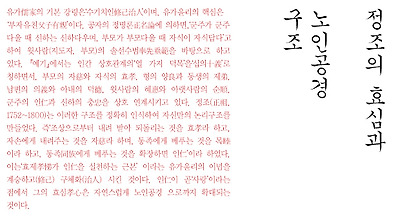 정조의 효심과
노인공경
구조
유가儒家의 기본 강령은'수기치인修己治人'이며, 유가윤리의 핵심은
'부자유친父子有親'이다. 공자의 정명론正名論에 의하면,'군주가 군주
다울 때 신하는 신하다우며, 부모가 부모다울 때 자식이 자식답다'고
하여 윗사람(지도자, 부모)의 솔선수범率先垂範을 바탕으로 하고
있다. 『예기』에서는 인간 상호관계의'열 가지 덕목'을'십의十義'로
칭하면서, 부모의 자慈와 자식의 효孝, 형의 양良과 동생의 제悌,
남편의 의義와 아내의 덕德, 윗사람의 혜惠와 아랫사람의 순順,
군주의 인仁과 신하의 충忠을 상호 연계시키고 있다. 정조(正祖,
1752~1800)는 이러한 구조를 정확히 인식하여 자신만의 논리구조를
만들었다. 즉'조상으로부터 내려 받아 되돌리는 것을 효孝라 하고,
자손에게 내려주는 것을 자慈라 하며, 동족에게 베푸는 것을 목睦
이라 하고, 동족同族에게 베푸는 것을 확장하면 인仁'이라 하였다.
이는'효제孝悌가 인仁을 실천하는 근본' 이라는 유가윤리의 이념을
계승하고(修己) 구체화(治人) 시킨 것이다. 인仁이 곧'사랑'이라는
점에서 그의 효심孝心은 자연스럽게 노인공경 으로까지 확대되는
것이다.